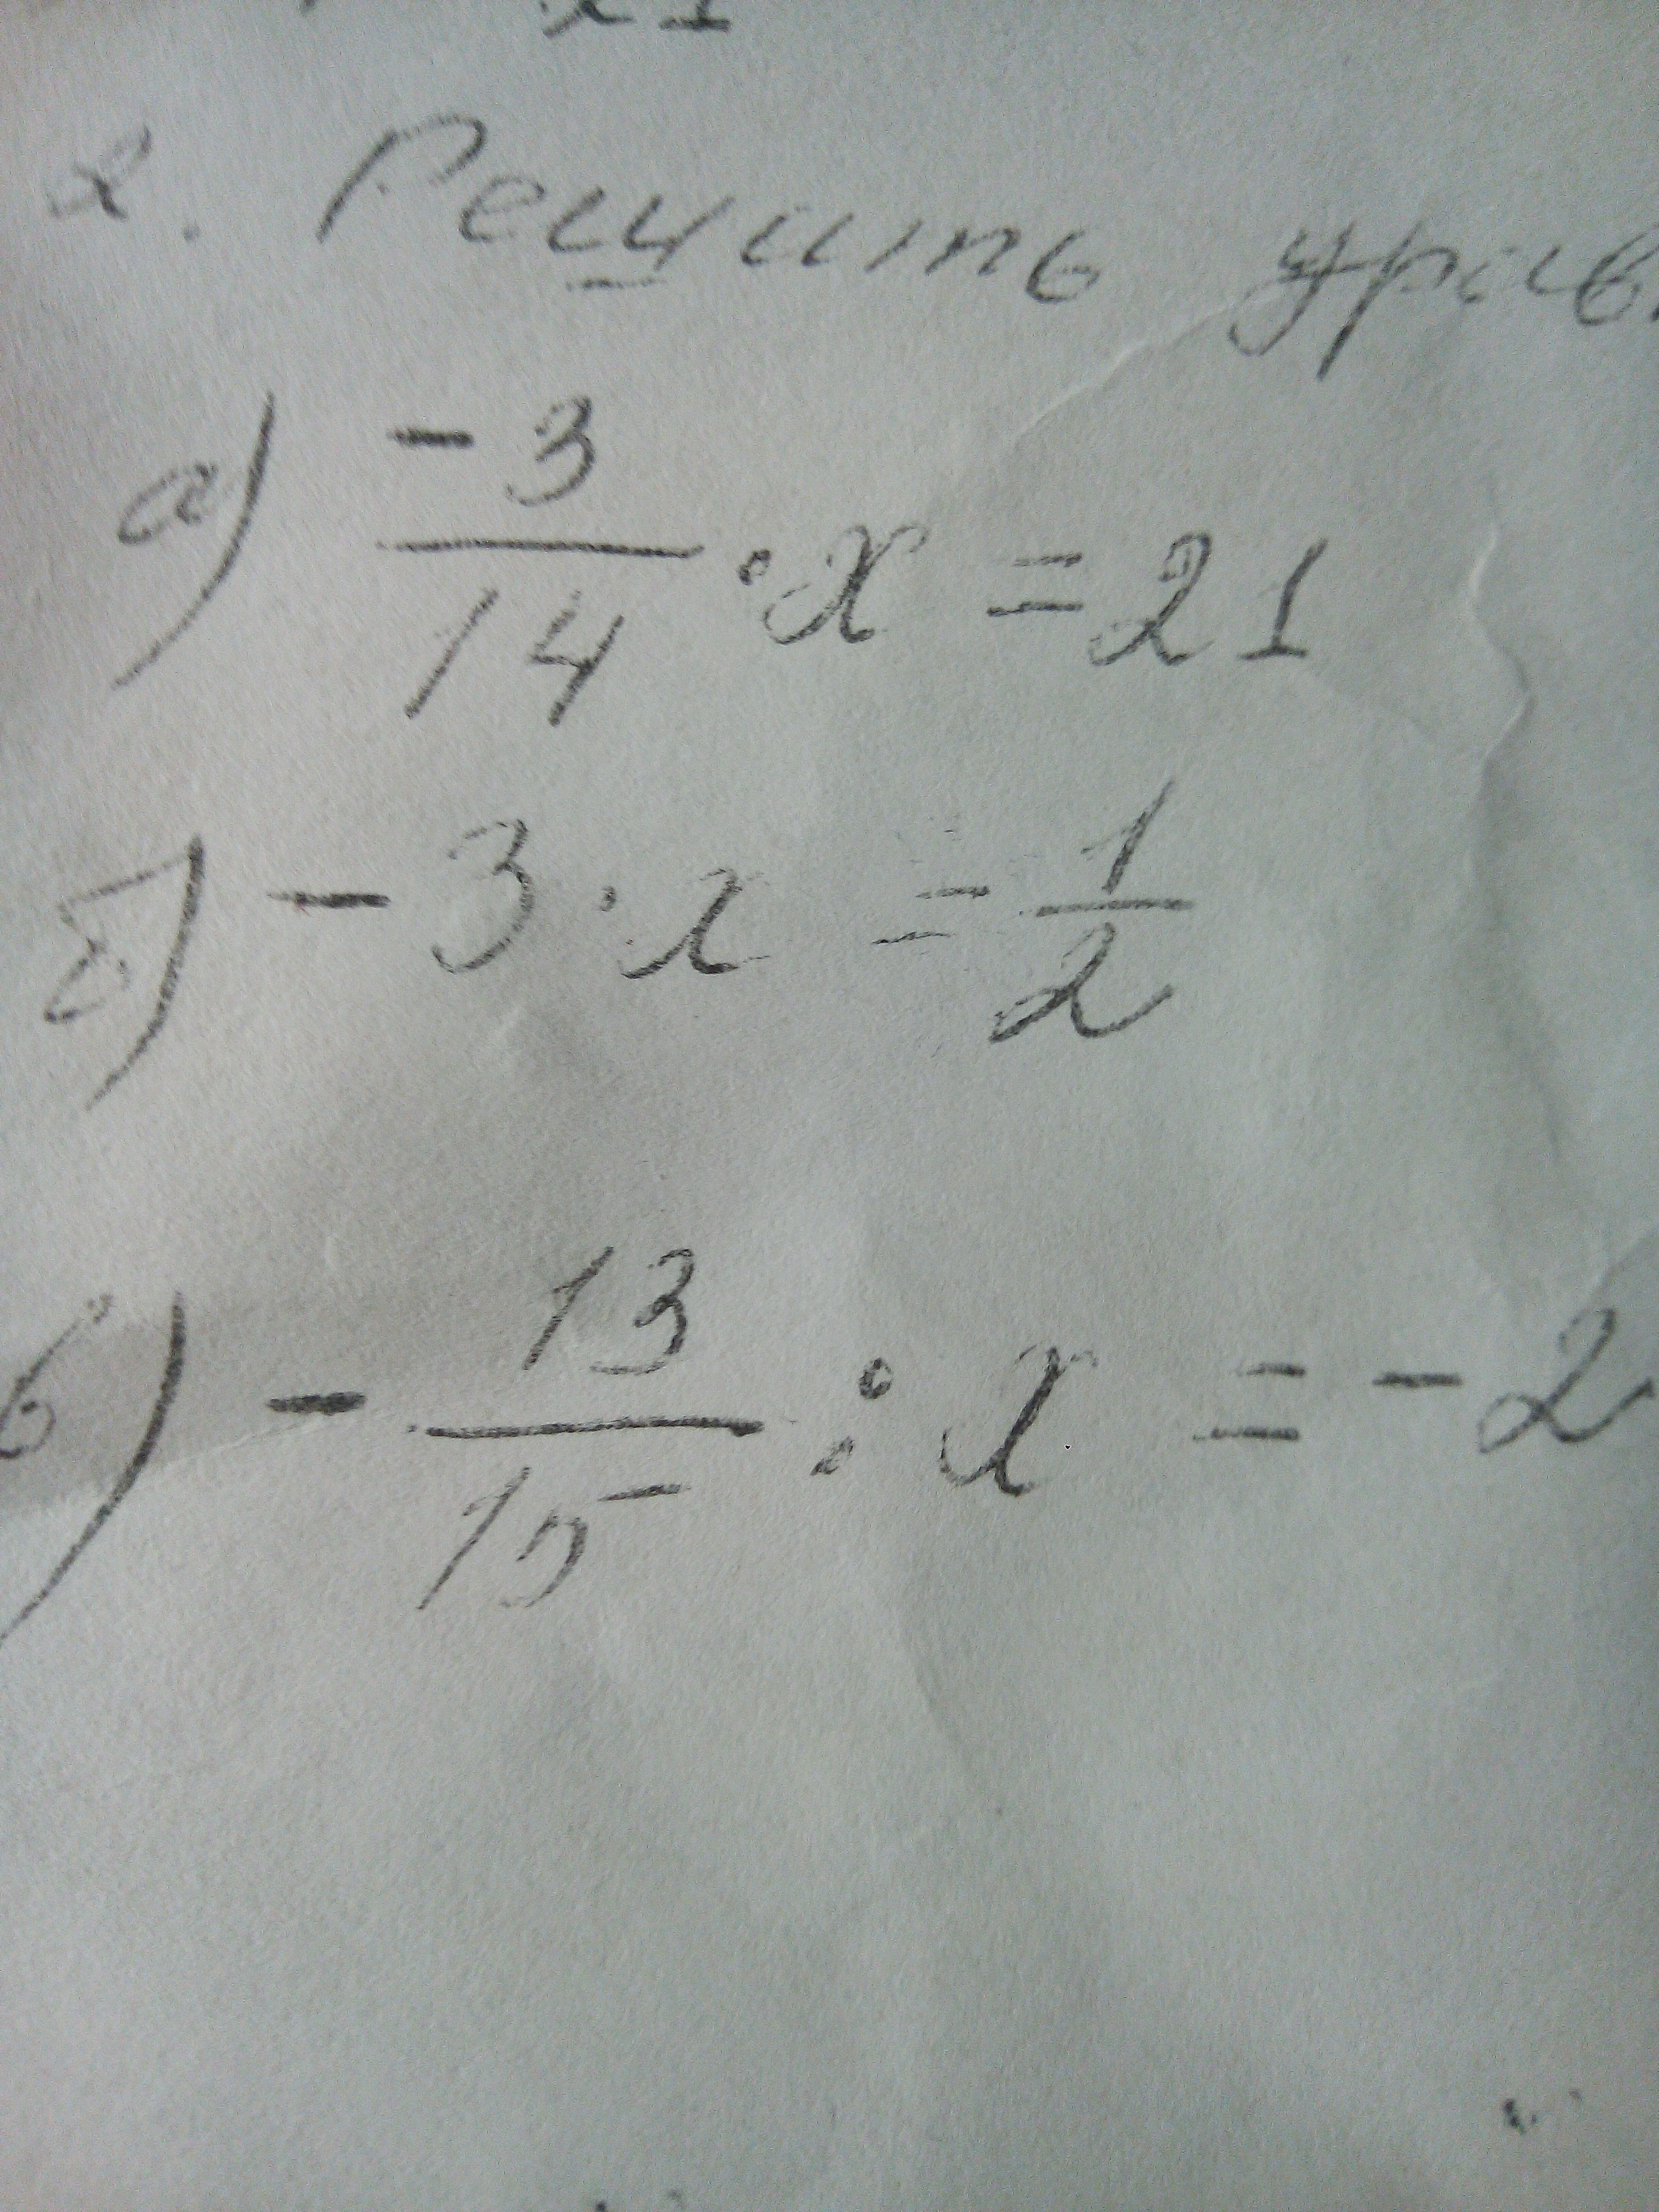 2. Решить урав
а) -3/14 · x = 21
б) -3 · x = 1/2
в) - 13/15 : x = -2